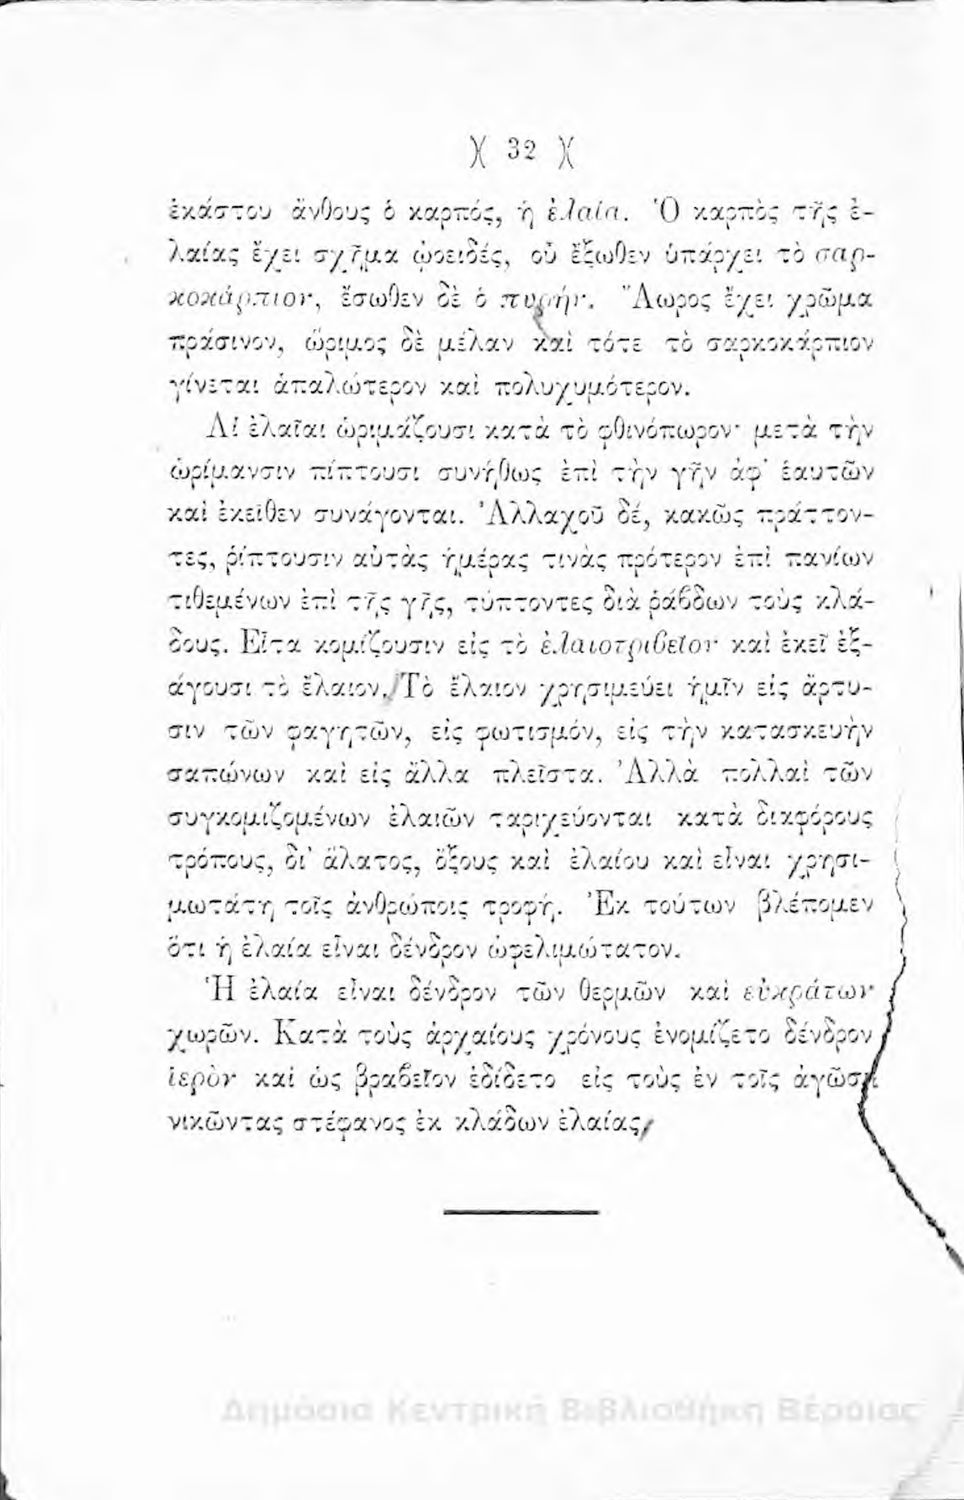 )( 32 )(
ἑκάστου ἄνθους ὁ καρπός, ἡ ἐλαία. Ὁ καρπὸς τῆς ἐ-
λαίας ἔχει σχῆμα ᾠοειδές, οὗ ἔξωθεν ὑπάρχει τὸ σαρ-
κοκάρπιον, ἔσωθεν δὲ ὁ πυρήν. Ἄωρος ἔχει χρῶμα
πράσινον, ὥριμος δὲ μέλαν καὶ τότε τὸ σαρκοκάρπιον
γίνεται ἁπαλώτερον καὶ πολυχυμότερον.
Αἱ ἐλαῖαι ὡριμάζουσι κατὰ τὸ φθινόπωρον· μετὰ τὴν
ὡρίμανσιν πίπτουσι συνήθως ἐπὶ τὴν γῆν ἀφ' ἑαυτῶν
καὶ ἐκεῖθεν συνάγονται. Ἀλλαχοῦ δέ, κακῶς πράττον-
τες, ῥίπτουσιν αὐτὰς ἡμέρας τινὰς πρότερον ἐπὶ πανίων
τιθεμένων ἐπὶ τῆς γῆς, τύπτοντες διὰ ῥάβδων τοὺς κλά-
δους. Εἶτα κομίζουσιν εἰς τὸ ἐλαιοτριβεῖον καὶ ἐκεῖ ἐξ-
άγουσι τὸ ἔλαιον. Τὸ ἔλαιον χρησιμεύει ἡμῖν εἰς ἄρτυ-
σιν τῶν φαγητῶν, εἰς φωτισμόν, εἰς τὴν κατασκευὴν
σαπώνων καὶ εἰς ἄλλα πλεῖστα. Ἀλλὰ πολλαὶ τῶν
συγκομιζομένων ἐλαιῶν ταριχεύονται κατὰ διαφόρους
τρόπους, δι' ἅλατος, ὄξους καὶ ἐλαίου καὶ εἶναι χρησι-
μωτάτη τοῖς ἀνθρώποις τροφή. Ἐκ τούτων βλέπομεν
ὅτι ἡ ἐλαία εἶναι δένδρον ὠφελιμώτατον.
Ἡ ἐλαία εἶναι δένδρον τῶν θερμῶν καὶ εὐκράτων
χωρῶν. Κατὰ τοὺς ἀρχαίους χρόνους ἐνομίζετο δένδρον
ἱερὸν καὶ ὡς βραβεῖον ἐδίδετο εἰς τοὺς ἐν τοῖς ἀγῶσι
νικῶντας στέφανος ἐκ κλάδων ἐλαίας.
Δημόσια Κεντρική Βιβλιοθήκη Βέροιας